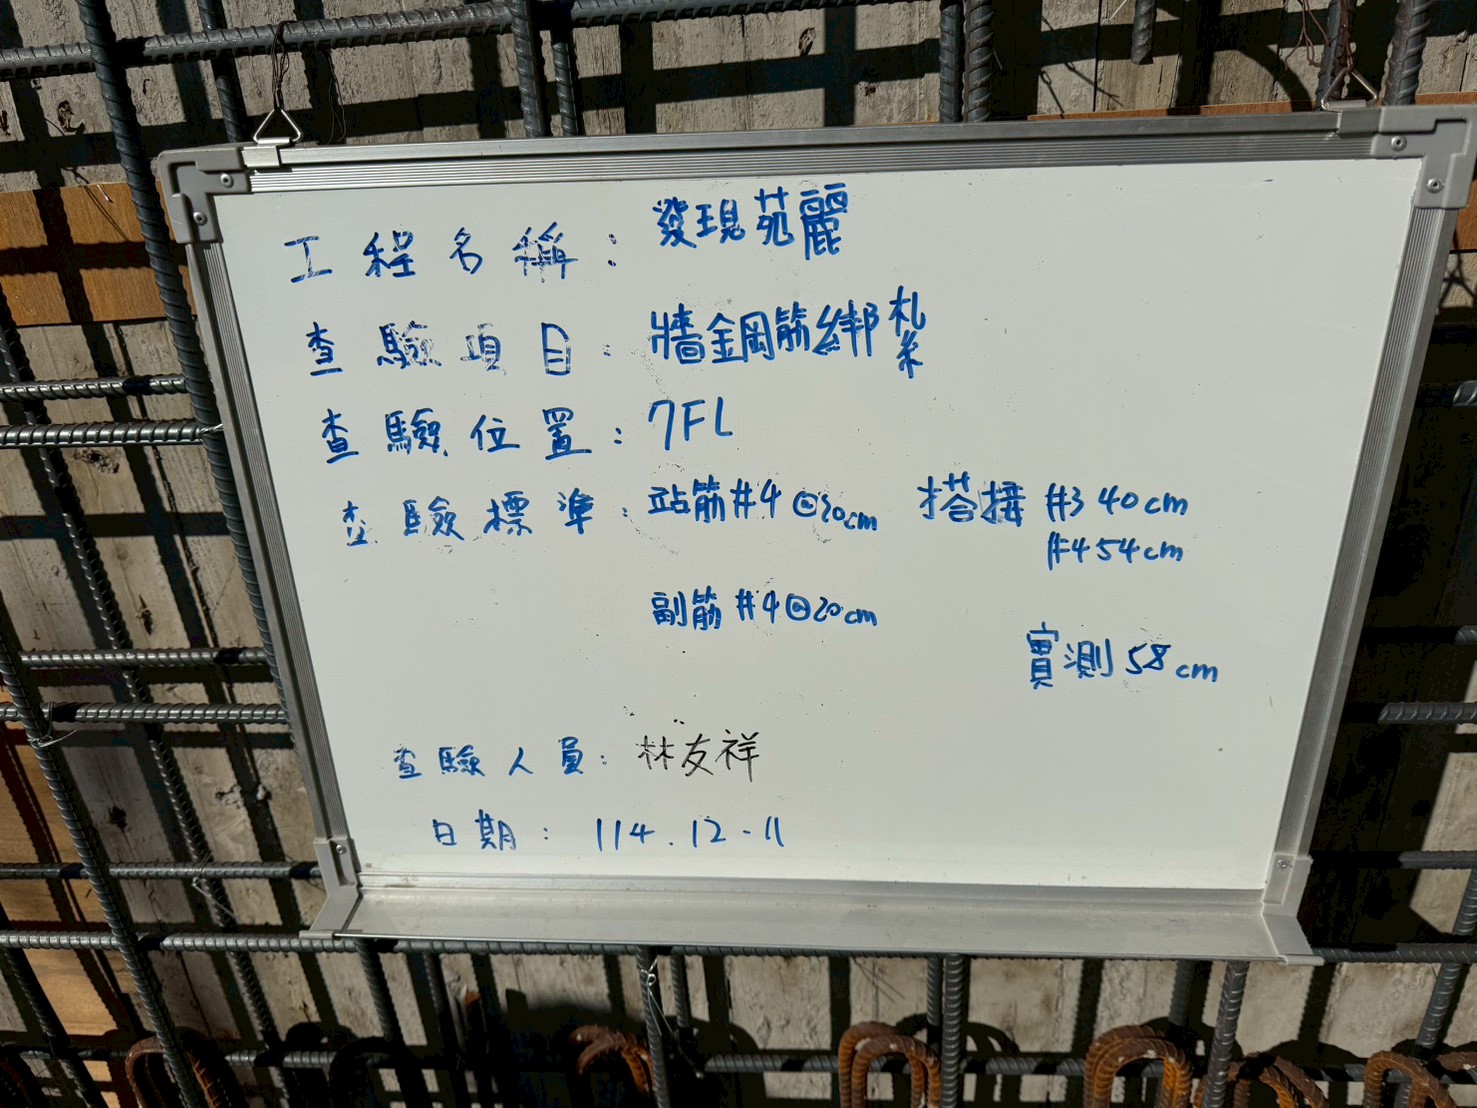 工程名稱：發現苑麗
查驗項目：牆鋼筋綁紮
查驗位置：7FL
查驗標準：站筋#4@20cm 搭接 #3 40cm
#4 54cm
副筋#4@20cm
實測 58cm
查驗人員：林友祥
日期：114.12-11